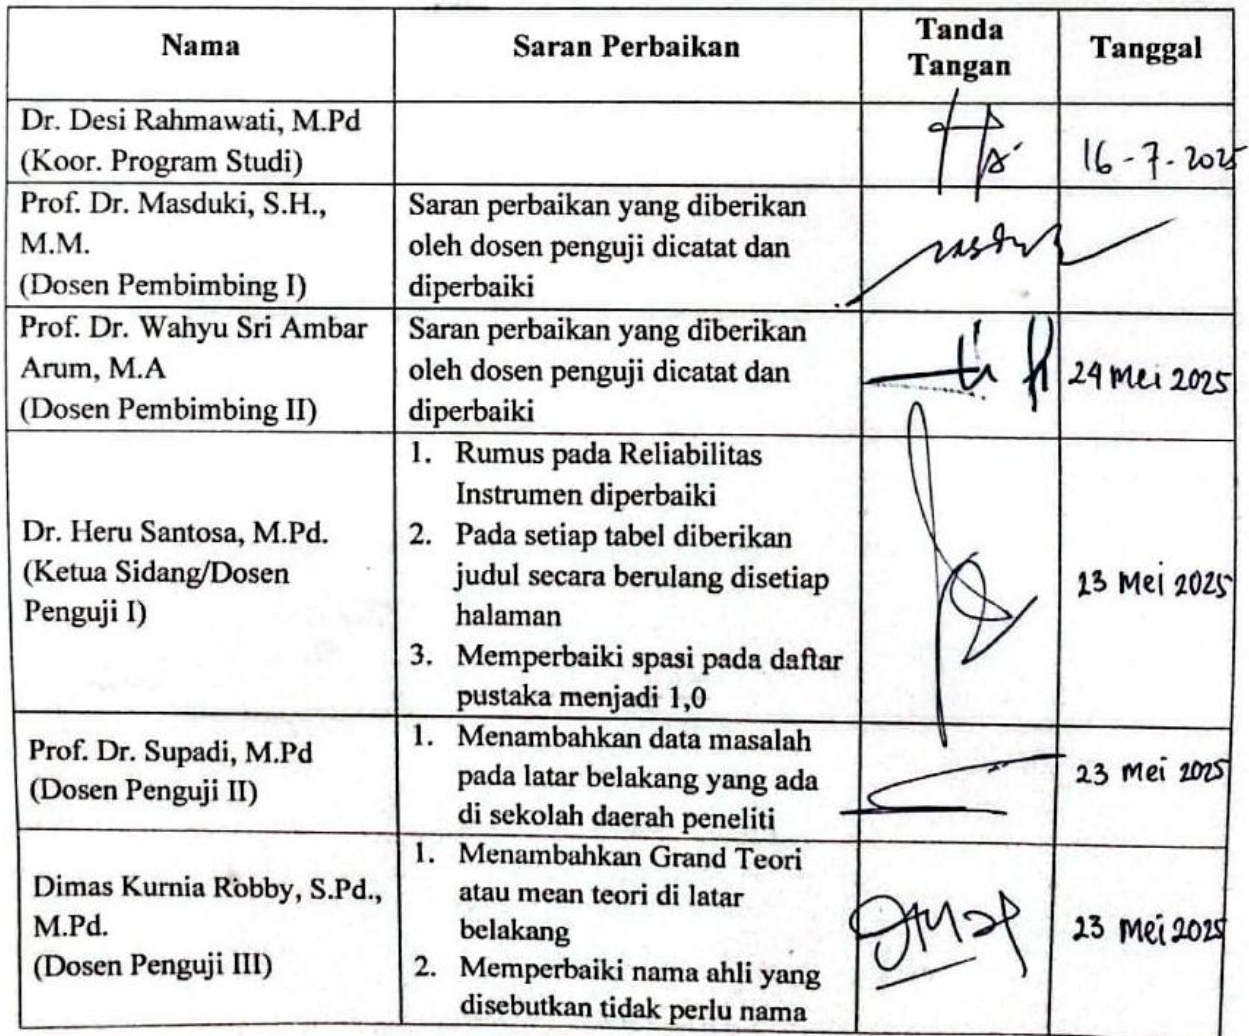 Nama
Saran Perbaikan
Tanda
Tangan
Tanggal
Dr. Desi Rahmawati, M.Pd
(Koor. Program Studi)
16-7-2025
Prof. Dr. Masduki, S.H.,
M.M.
(Dosen Pembimbing I)
Saran perbaikan yang diberikan
oleh dosen penguji dicatat dan
diperbaiki
Prof. Dr. Wahyu Sri Ambar
Arum, M.A
(Dosen Pembimbing II)
Saran perbaikan yang diberikan
oleh dosen penguji dicatat dan
diperbaiki
24 Mei 2025
Dr. Heru Santosa, M.Pd.
(Ketua Sidang/Dosen
Penguji I)
1. Rumus pada Reliabilitas
Instrumen diperbaiki
2. Pada setiap tabel diberikan
judul secara berulang disetiap
halaman
3. Memperbaiki spasi pada daftar
pustaka menjadi 1,0
23 Mei 2025
Prof. Dr. Supadi, M.Pd
(Dosen Penguji II)
1. Menambahkan data masalah
pada latar belakang yang ada
di sekolah daerah peneliti
23 Mei 2025
Dimas Kurnia Robby, S.Pd.,
M.Pd.
(Dosen Penguji III)
1. Menambahkan Grand Teori
atau mean teori di latar
belakang
2. Memperbaiki nama ahli yang
disebutkan tidak perlu nama
23 Mei 2025